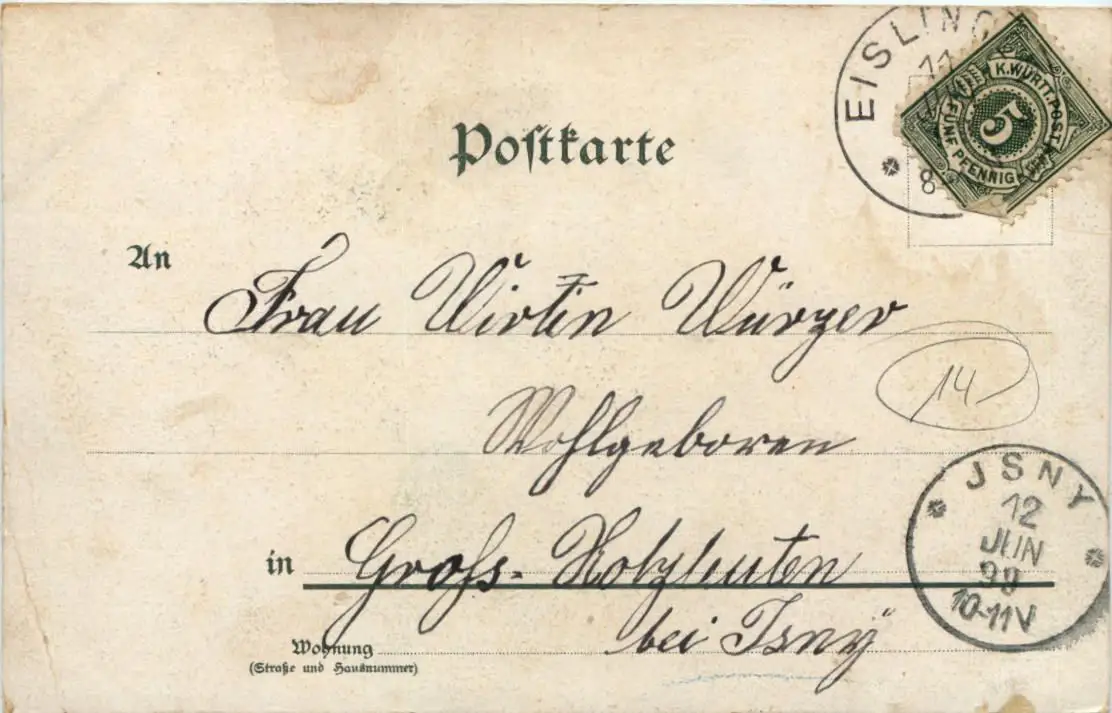 EISLING
11
8
K. WÜRTT. POST
5
FÜNF PFENNIG
Postkarte
An
Frau Wirtin Würzer
14
Wohlgeboren
JSNY
12
JUN
99
10-11V
in Gross-Holzleuten
bei Isny
Wohnung
(Straße und Hausnummer)